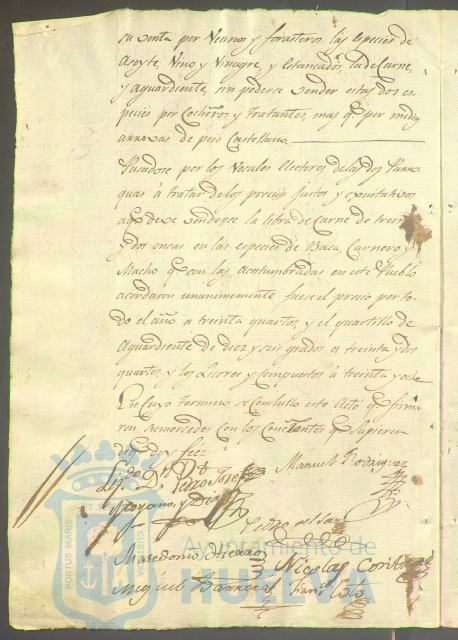 su venta por Vecinos y forasteros las especies de
Aseyte, Vino y Vinagre, y Estancados, la de Carne,
y aguardiente, sin poderse vender estas dos es
pecies por Cocheros y Tratantes, mas qe per media
arrovas de peso Castellano
Pasadose por los Vocales Electores de las dos Parro
quias à tratar de los precios justos y
a qe deve venderse la libra de Carne de trein
y dos onzas en las especies de Baca, Carnero y
Macho qe son las acostumbradas en este Pueblo
acordaron unanimemente fuese el precio por to
do el año a treinta quartos, y el quartillo de
Aguardiente de diez y seis grados a treinta y dos
quartos, y los Licores y compuestos à treinta y ocho
En cuyo termino se concluyó este Acto qe firma
ron sus mercedes con los qe supieren
de qe doy fee
Ldo. Dn. Pedro José
Manuel Rodriguez
Pedro
Macedonio
Nicolas
Miguel Barrera
Ayuntamiento de
HUELVA
PORTUS MARIS